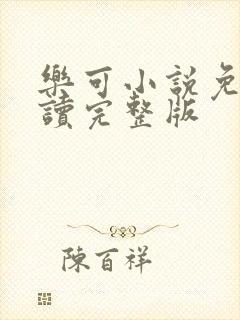 樂可小說免
讀完整版
陳百祥